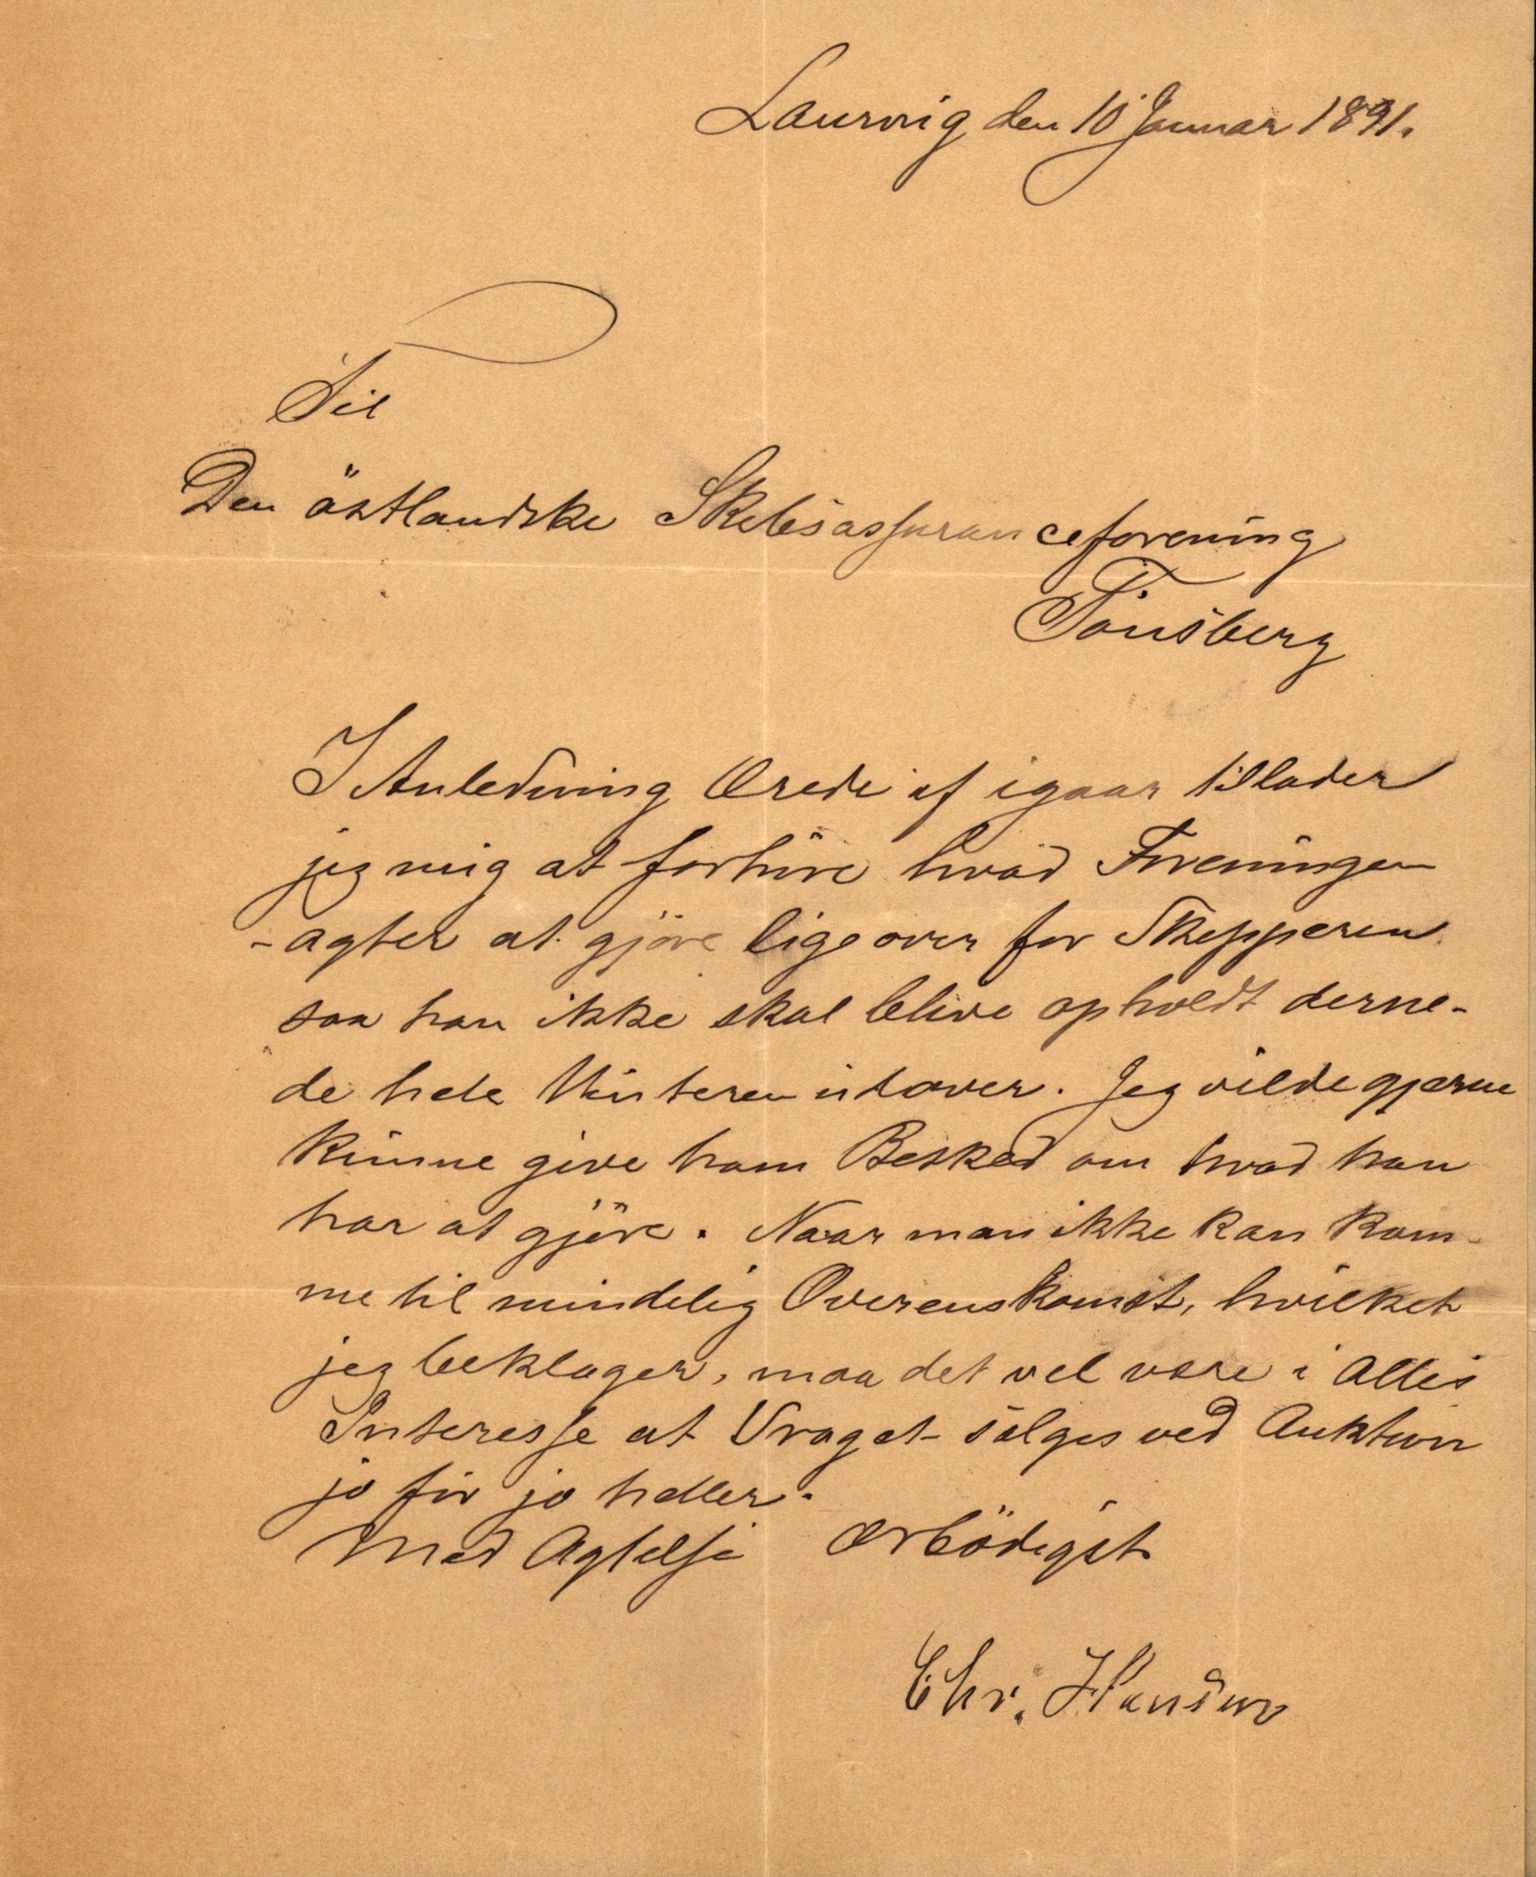 Laurvig den 10 Januar 1891.
Til
Den östlandske Skibsassuranceforening
Tönsberg
I Anledning Ærede af igaar tillader
jeg mig at forhöre hvad Foreningen
- agter at gjöre lige over for Skipperen
saa han ikke skal blive opholdt derne-
de hele Vinteren udover. Jeg vilde gjerne
kunne give ham Besked om hvad han
har at gjöre. Naar man ikke kan kom-
me til mindelig Overenskomst, hvilket
jeg beklager, maa det vel være i Alles
Interesse at Vraget sælges ved Auktion
jo för jo heller.
Med Agtelse ærbödigst
Chr. Hansen